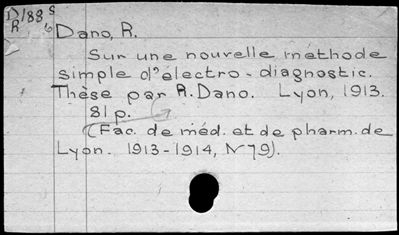 D/88 S
R 6
Dano, R.
Sur une nouvelle méthode
simple d'électro-diagnostic.
Thèse par R. Dano. Lyon, 1913.
81 p.
(Fac. de méd. et de pharm. de
Lyon. 1913-1914, N 79).